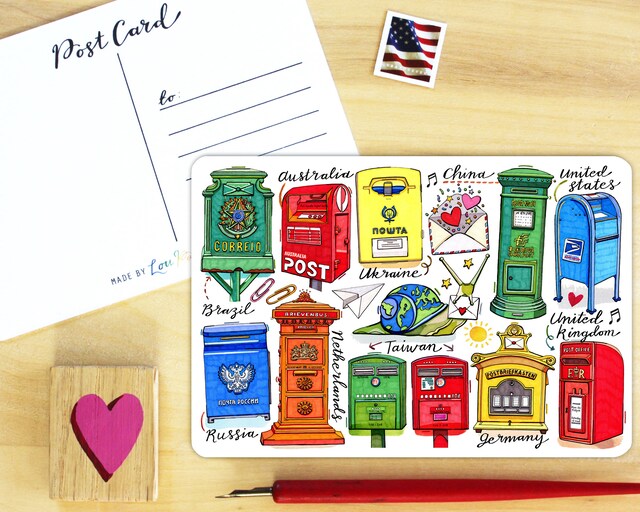 Post Card
to:
MADE BY Lou
Australia
China
United
states
CORREIO
AUSTRALIA
POST
ПОШТА
Ukraine
Brazil
Taiwan
United
Kingdom
BRIEVENBUS
Netherlands
ПОЧТА РОССИИ
POSTBRIEFKASTEN
POST OFFICE
E R
Russia
Germany